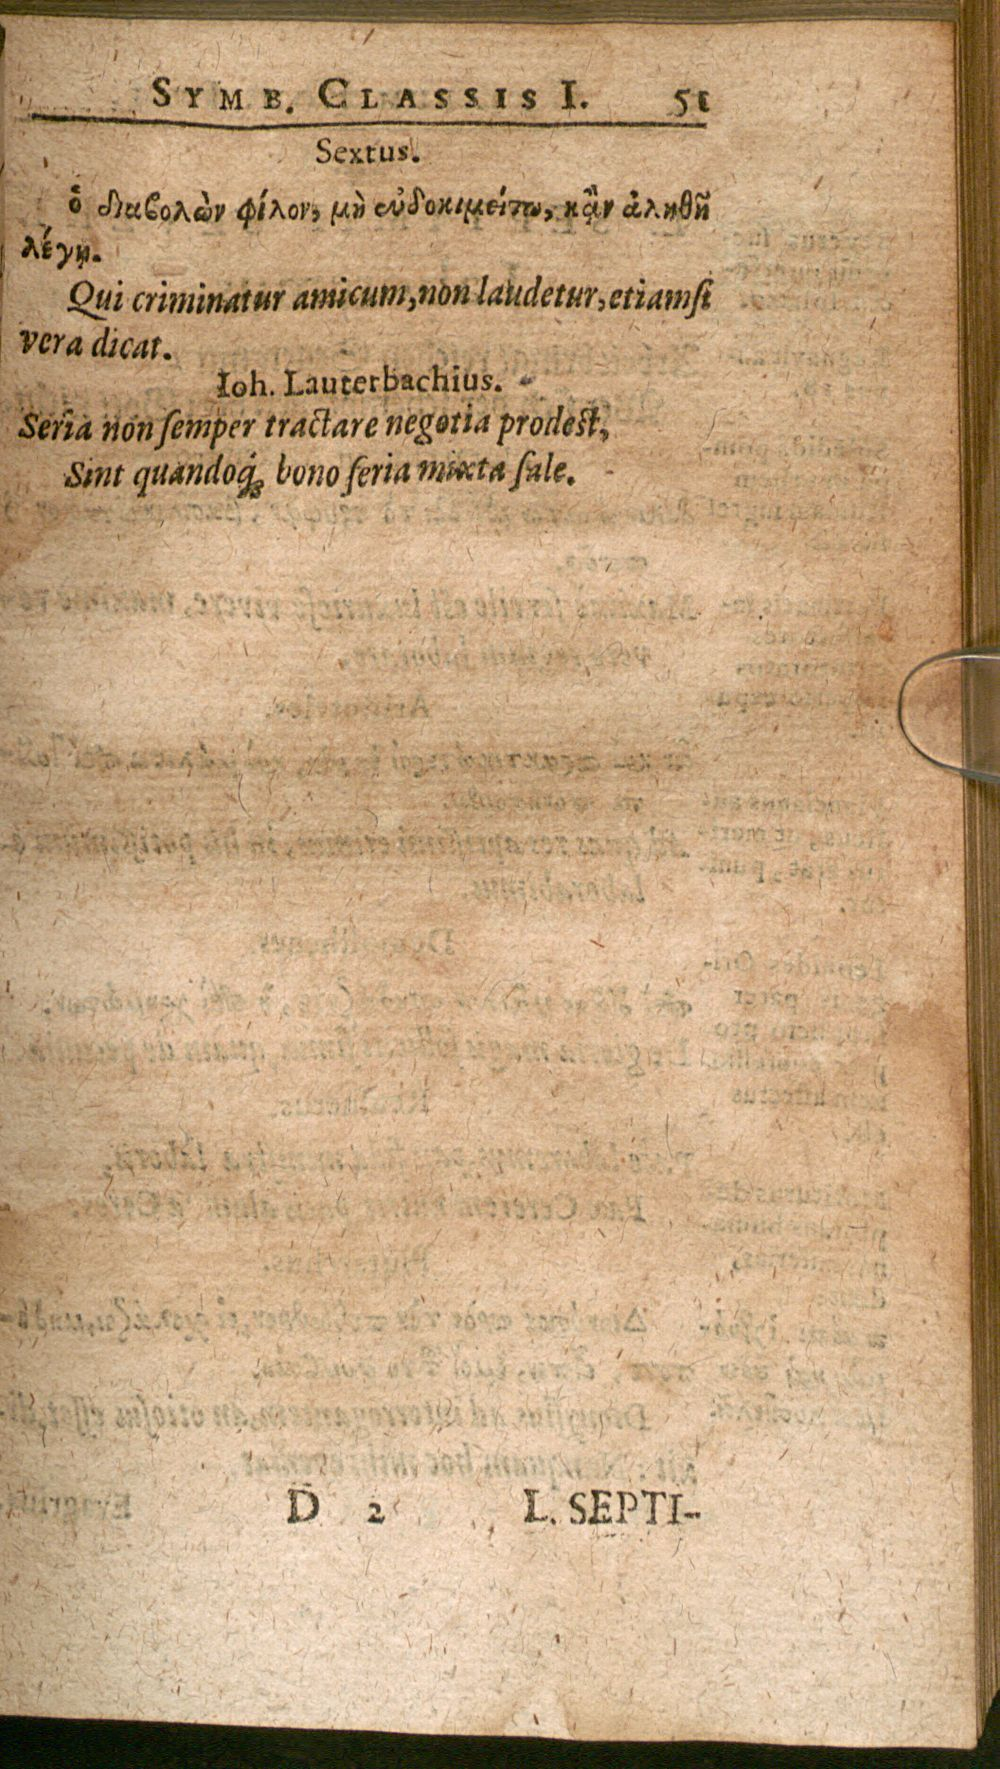 SYMB. CLASSIS I. 51
Sextus.
ὁ διαβολῶν φίλον, μὴ εὐδοκιμείτω, κᾂν ἀληθῆ
λέγῃ.
Qui criminatur amicum, non laudetur, etiamsi
vera dicat.
Ioh. Lauterbachius.
Seria non semper tractare negotia prodest,
Sint quandoq́; bono seria mixta sale.
D 2 L. SEPTI-